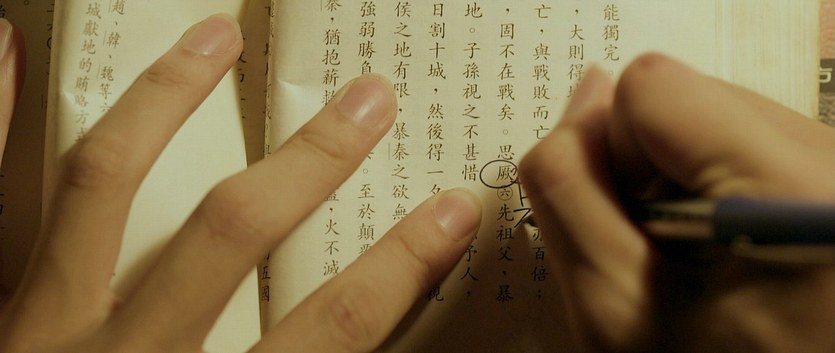 能獨完。
，大則得
亡，與戰敗而亡 亦百倍；
，固不在戰矣。思厥㊅先祖父，暴
地。子孫視之不甚惜 予人，
日割十城，然後得一夕 視
侯之地有限，暴秦之欲無
強弱勝負 。至於顛
秦，猶抱薪 ，火不滅
五國
趙，韓，魏等
城獻地的賄賂方式